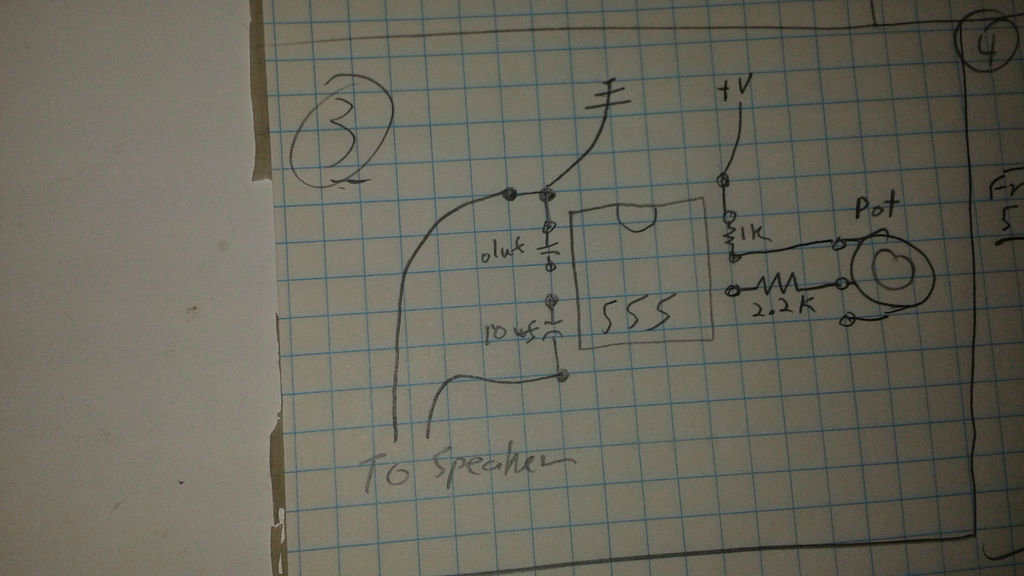 3
4
+V
Pot
1K
.01uf
2.2K
555
10uf
5
To Speaker